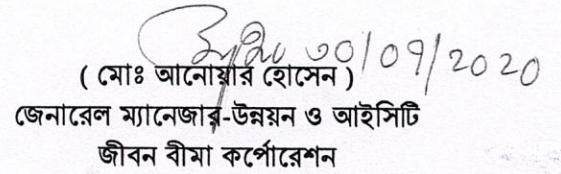 ৩০/০৭/২০২০
( মোঃ আনোয়ার হোসেন )
জেনারেল ম্যানেজার-উন্নয়ন ও আইসিটি
জীবন বীমা কর্পোরেশন